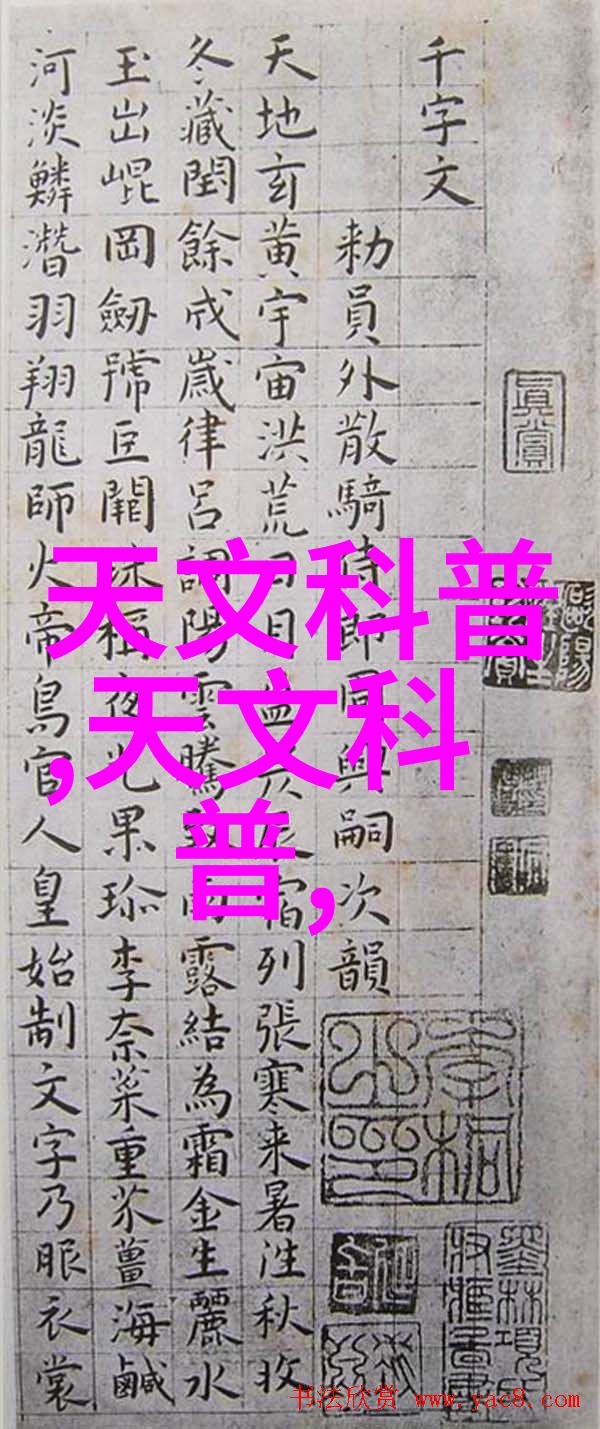 千字文
勑員外散騎侍郎周興嗣次韻
天地玄黃宇宙洪荒日月盈昃辰宿列張寒来暑往秋收
冬藏閏餘成歲律呂調陽雲騰致雨露結為霜金生麗水
玉出崐岡劒號巨闕珠稱夜光果珎李柰菜重芥薑海鹹
河淡鱗潛羽翔龍師火帝鳥官人皇始制文字乃服衣裳
真賞
天文科普
,天文科
普,
书法欣赏 www.yac8.com